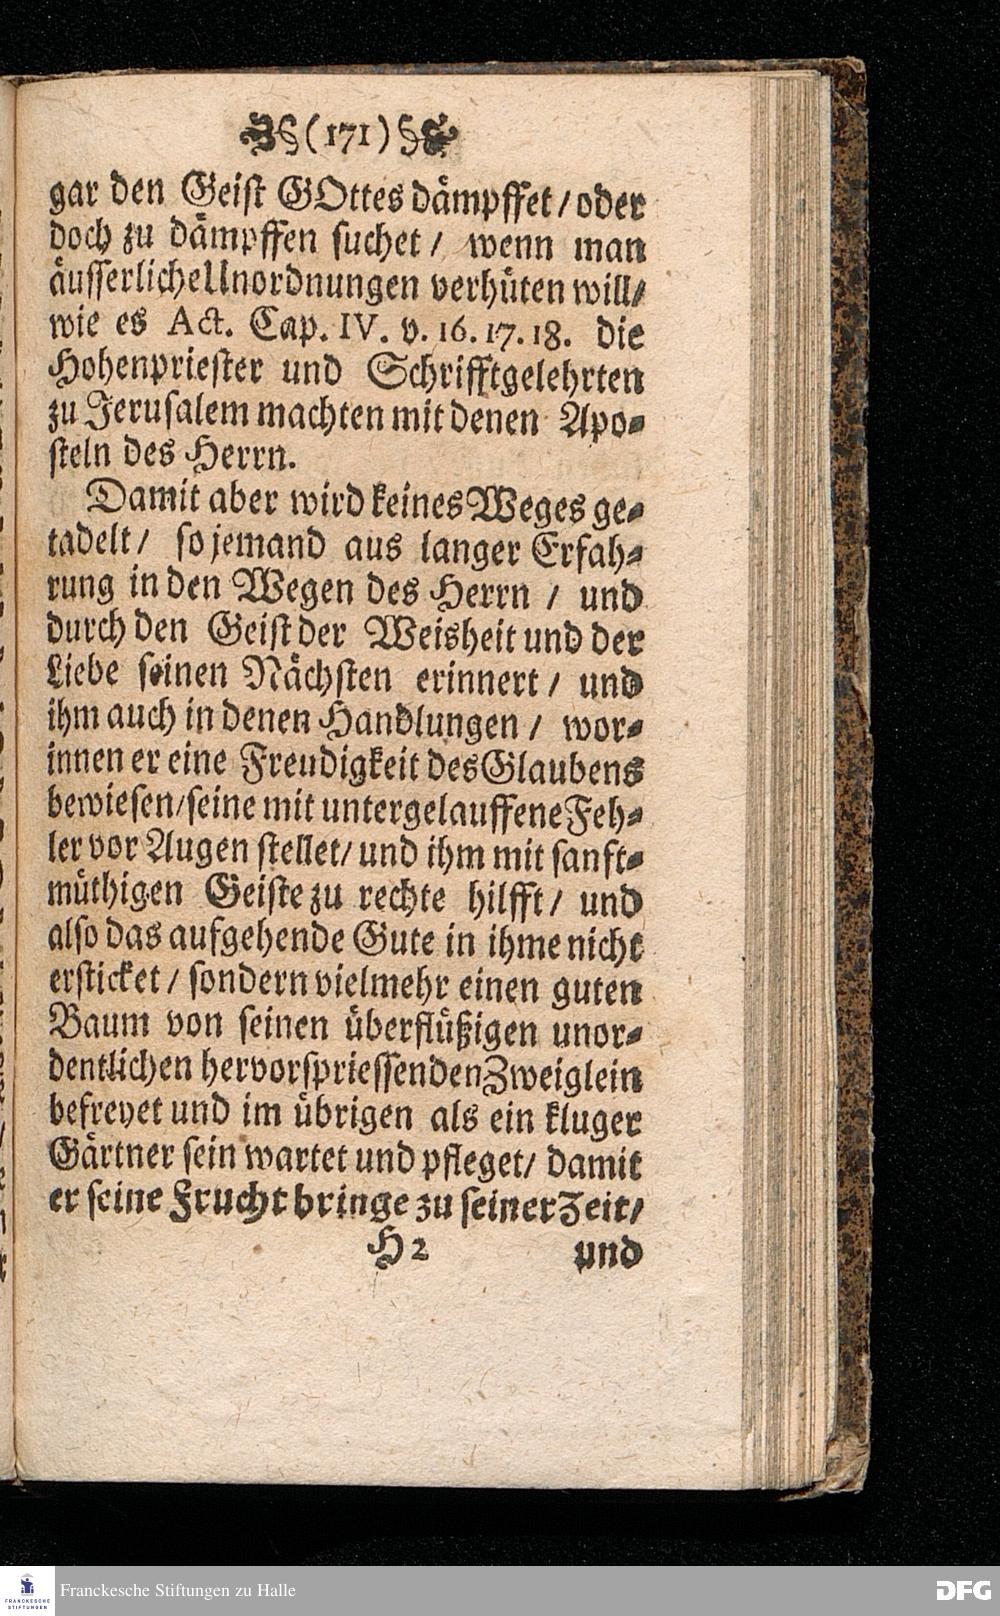 §(171)§
gar den Geist GOttes dämpffet/oder
doch zu dämpffen suchet/ wenn man
äusserliche Unordnungen verhüten will/
wie es Act. Cap. IV. v. 16. 17. 18. die
Hohenpriester und Schrifftgelehrten
zu Jerusalem machten mit denen Apo-
steln des Herrn.
Damit aber wird keines Weges ge-
tadelt/ so jemand aus langer Erfah-
rung in den Wegen des Herrn / und
durch den Geist der Weisheit und der
Liebe seinen Nächsten erinnert/ und
ihm auch in denen Handlungen/ wor-
innen er eine Freudigkeit des Glaubens
bewiesen/seine mit untergelauffene Feh-
ler vor Augen stellet/ und ihm mit sanft-
müthigen Geiste zu rechte hilfft/ und
also das aufgehende Gute in ihme nicht
ersticket/ sondern vielmehr einen guten
Baum von seinen überflüßigen unor-
dentlichen hervorspriessenden Zweiglein
befreyet und im übrigen als ein kluger
Gärtner sein wartet und pfleget/ damit
er seine Frucht bringe zu seiner Zeit/
H 2 und
FRANCKESCHE STIFTUNGEN
Franckesche Stiftungen zu Halle
DFG